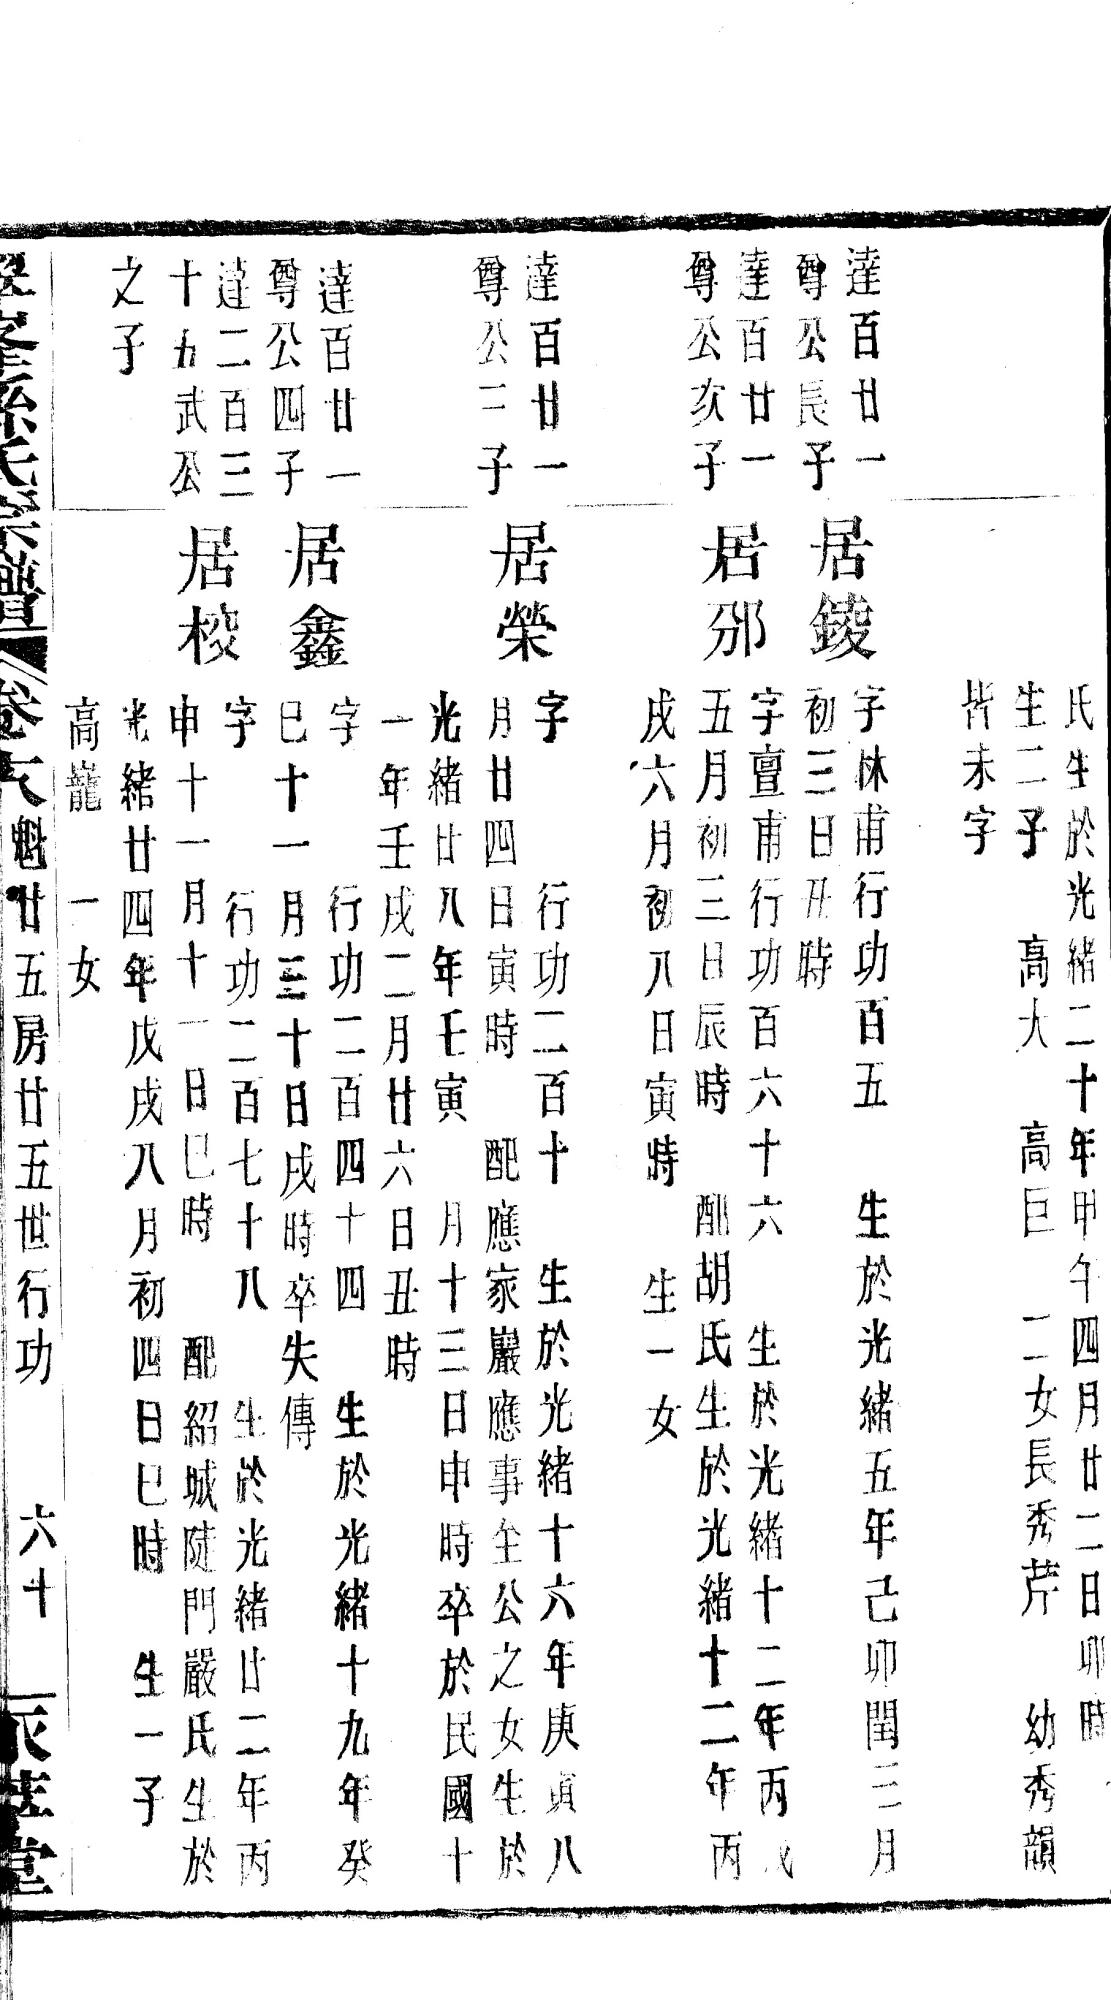 氏生於光緒二十年甲午四月廿二日卯時
生二子 高大 高巨 二女長秀芹 幼秀韻
皆未字
達百廿一
尊公長子
居錂
字林甫行功百五 生於光緒五年己卯閏三月
初三日丑時
達百廿一
尊公次子
居邠
字亶甫行功百六十六 生於光緒十二年丙戌
五月初三日辰時 配胡氏生於光緒十二年丙
戌六月初八日寅時 生一女
達百廿一
尊公三子
居榮
字 行功二百十 生於光緒十六年庚寅八
月廿四日寅時 配應家巖應事全公之女生於
光緒廿八年壬寅 月十三日申時卒於民國十
一年壬戌二月廿六日丑時
達百廿一
尊公四子
居鑫
字 行功二百四十四 生於光緒十九年癸
巳十一月三十日戌時卒失傳
達二百三
十五武公
之子
居校
字 行功二百七十八 生於光緒廿二年丙
申十一月十一日巳時 配紹城陡門嚴氏生於
光緒廿四年戊戌八月初四日巳時 生一子
高巃 一女
孫氏宗譜 卷六 魁廿五房廿五世行功 六十 堂